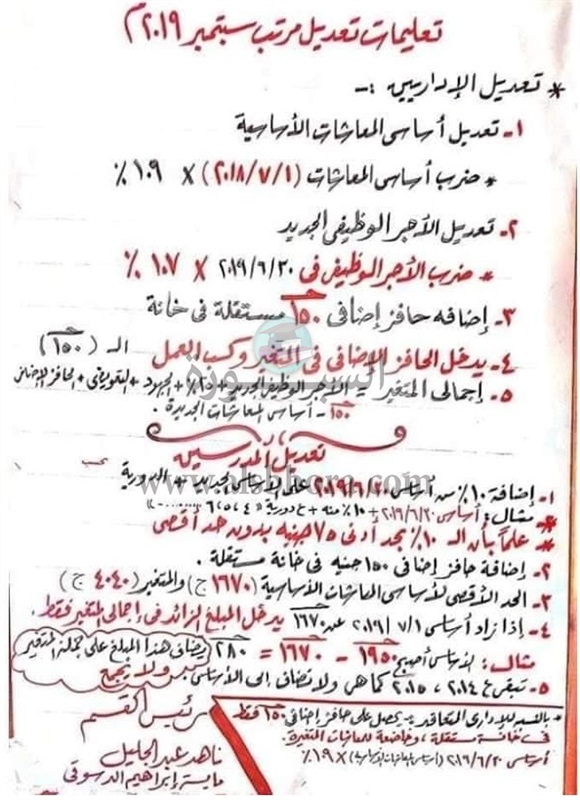 تعليمات تعديل مرتب سبتمبر ٢٠١٩م
* تعديل الإداريين :-
١- تعديل أساسى المعاشات الأساسية
* ضرب أساسى المعاشات (٢٠١٨/٧/١) × ١٠٩ %
٢- تعديل الأجر الوظيفى الجديد
* ضرب الأجر الوظيفى فى ٢٠١٩/٦/٣٠ × ١٠٧ %
٣- إضافه حافز إضافى ١٥٠ مستقلة فى خانة
٤- يدخل الحافز الإضافى فى المتغير وكسب العمل الـ (١٥٠)
٥- إجمالى المتغير = الأجر الوظيفى الجديد + ٢٥% + الجهود + التعويضى + الحافز الإضافى
١٥٠ - أساسى المعاشات الجديدة .
السبورة
www.alsbbora.com
تعديل المدرسين
١- إضافة ١٠% من أساسى ٢٠١٩/٦/٣٠ على الأساسى الجديد + الدورية
* مثال : أساسى ٢٠١٩/٦/٣٠ + ١٠% منه + ع دورية
* علماً بأن الـ ١٠% بحد أدنى ٧٥ جنيه بدون حد أقصى
٢- إضافة حافز إضافى ١٥٠ جنيه فى خانة مستقلة .
٣- الحد الأقصى لأساسى المعاشات الأساسية (١٦٧٠ ج) والمتغير (٤٠٤٠ ج)
٤- إذا زاد أساسى ٢٠١٩/٧/١ عن ١٦٧٠ يدخل المبلغ الزائد فى إجمالى المتغير فقط .
مثال : الأساسى أصبح ١٩٥٠ - ١٦٧٠ = ٢٨٠ يضاف هذا المبلغ على جملة المتغير
ولا يجمع
٥- تبقى ع ٢٠١٤ ، ٢٠١٥ كما هى ولا تضاف إلى الأساسى .
* بالنسبة للإدارى المتعاقد :- يحصل على حافز إضافى ١٥٠ فقط
فى خانة مستقلة ، وخاضعة للمعاشات المتغيرة .
رئيس القسم
ناهد عبد الجليل
مايسة إبراهيم الدسوقى